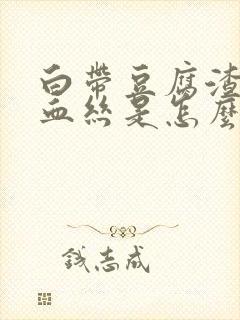 白帶豆腐渣
血絲是怎麼
錢志成